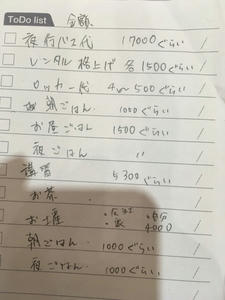 ToDo list 金額
夜行バス代 17000ぐらい
レンタル 格上げ 各1500ぐらい
ロッカー代 4~500ぐらい
朝ごはん. 1000ぐらい
お昼ごはん 1500ぐらい
夜ごはん 〃
講習 5300ぐらい
お茶
お土産 ・自分 4000
朝ごはん. 1000ぐらい
夜ごはん. 1000ぐらい